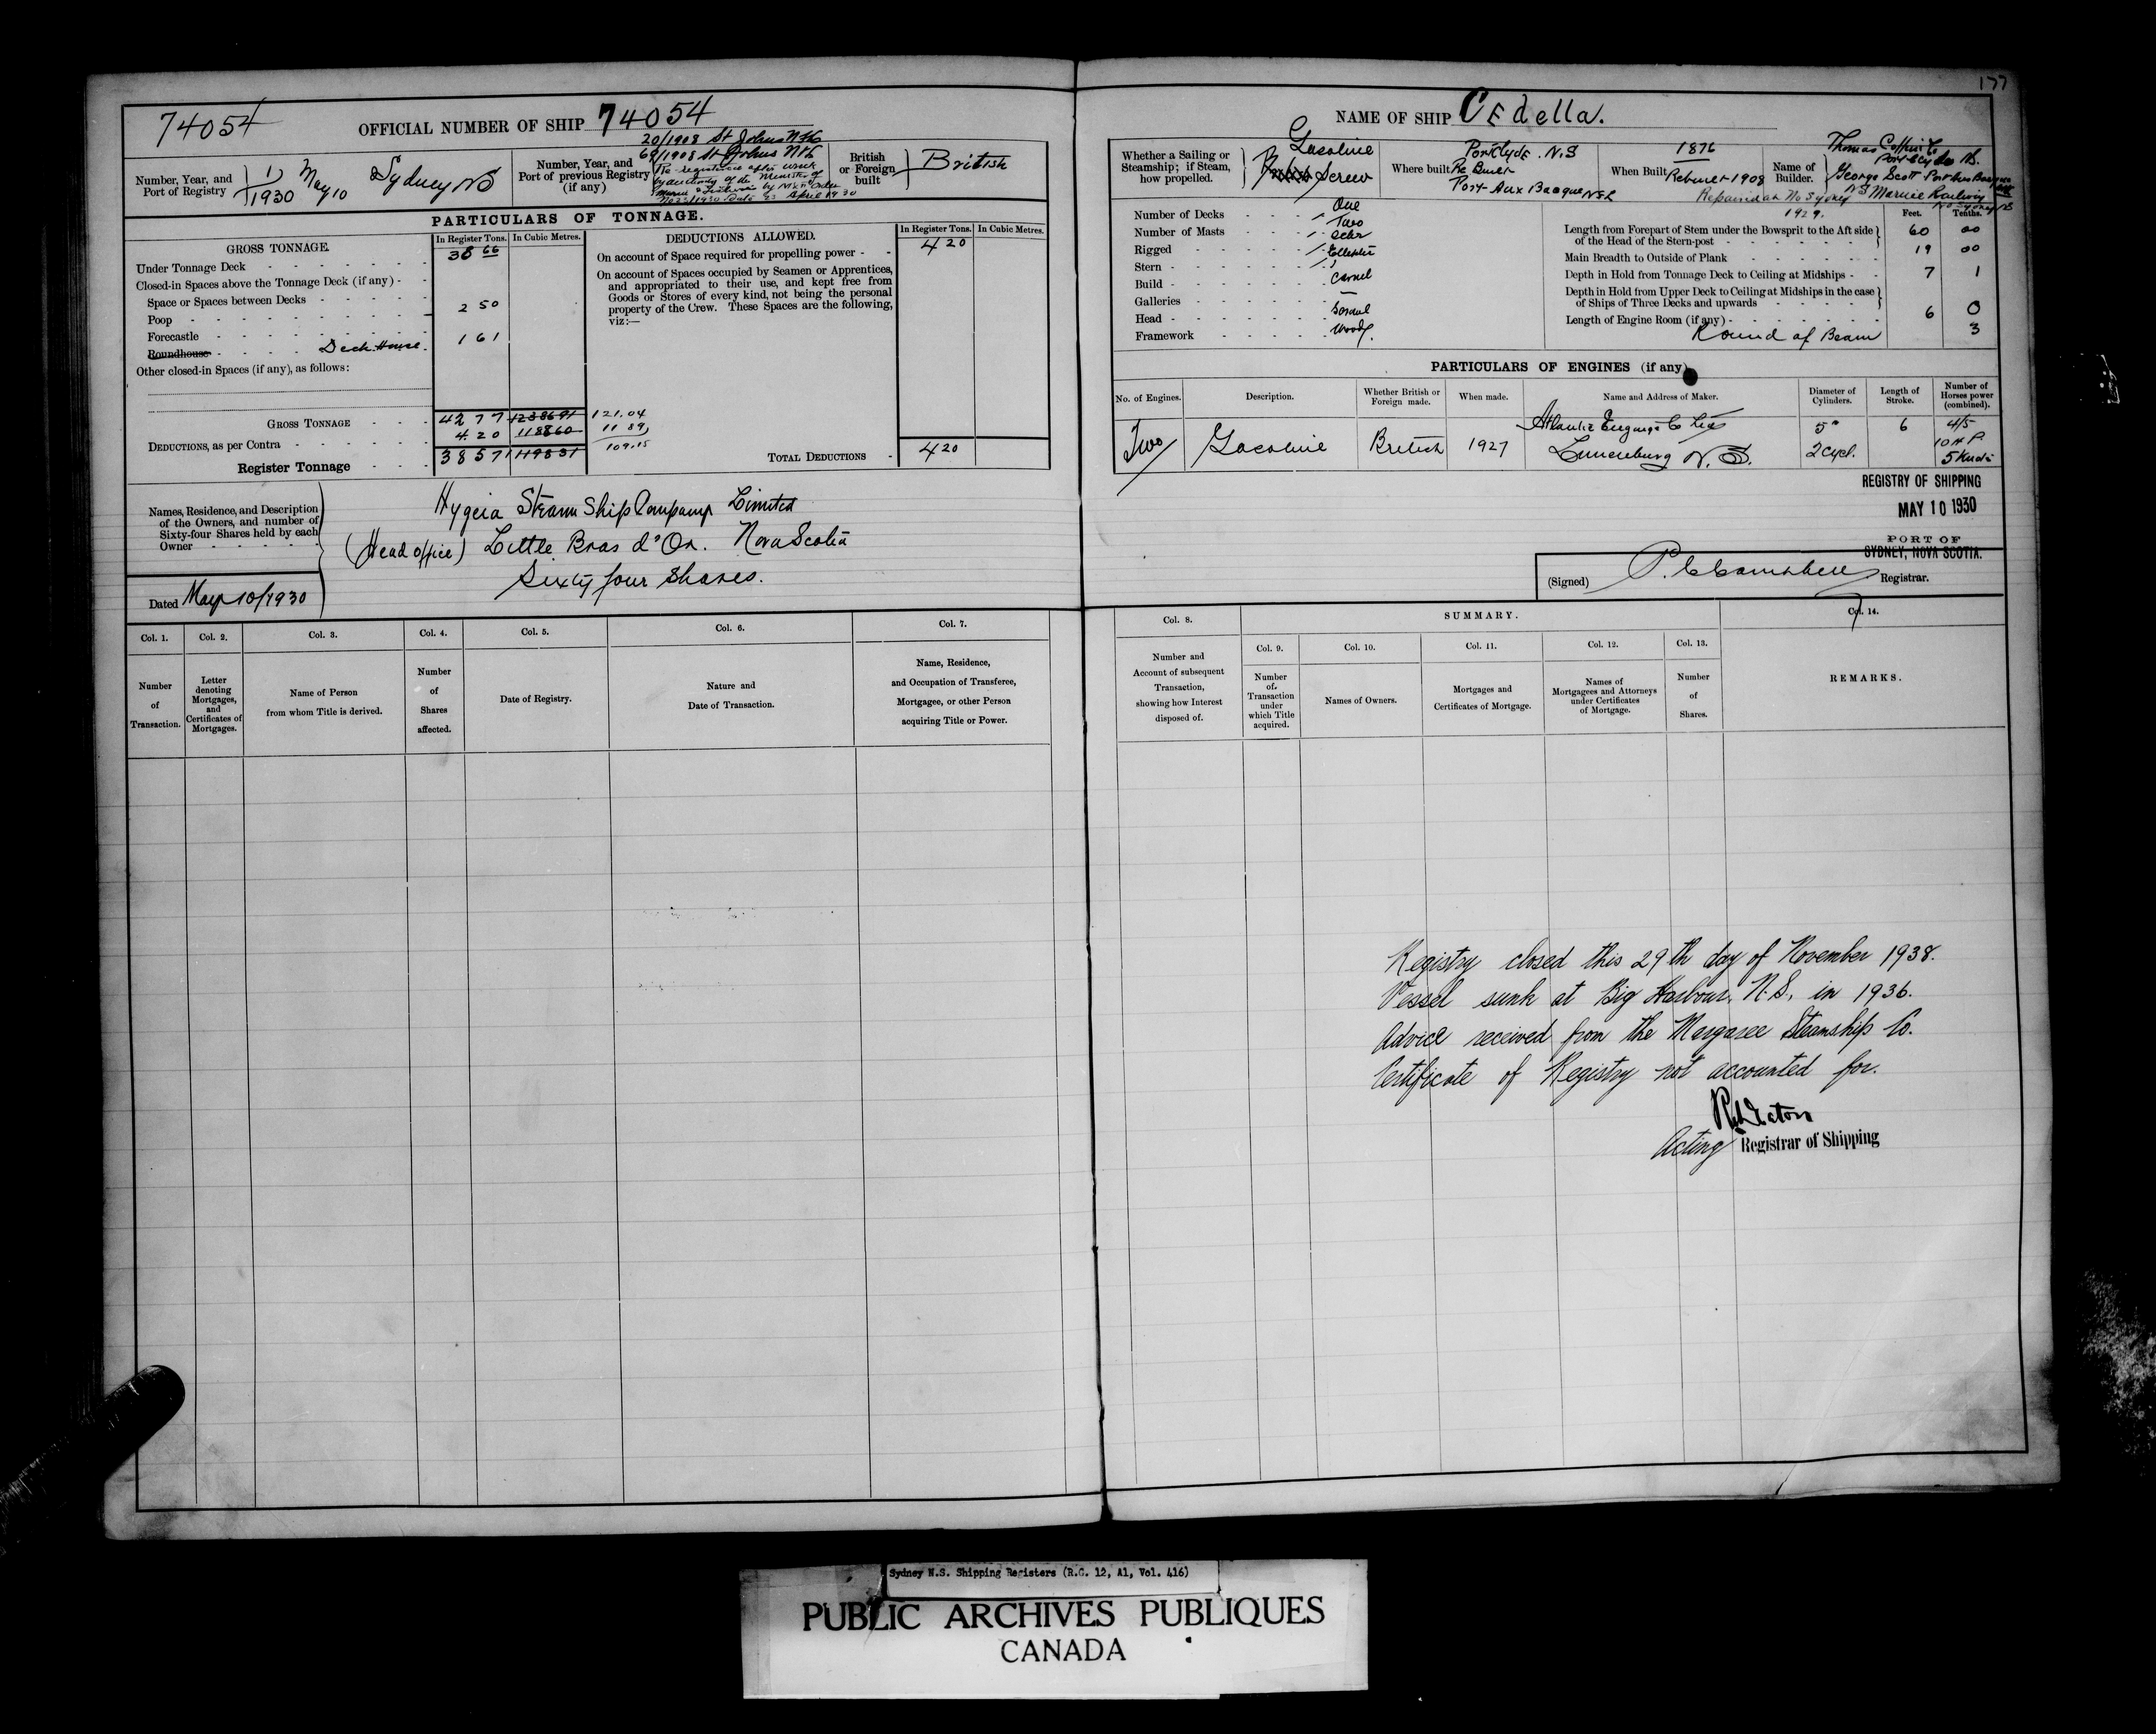 177
74054
OFFICIAL NUMBER OF SHIP 74054
Number, Year, and Port of Registry 1/1930 May 10 Sydney NS
Number, Year, and Port of previous Registry (if any)
20/1908 St Johns Nfld
69/1908 St Johns Nfld
Re-registered after wreck
by authority of the Minister of
April 1930
British or Foreign built British
PARTICULARS OF TONNAGE.
GROSS TONNAGE.
In Register Tons. In Cubic Metres.
Under Tonnage Deck 38 66
Closed-in Spaces above the Tonnage Deck (if any)
Space or Spaces between Decks
Poop 2 50
Forecastle
Roundhouse Deck House. 1 61
Other closed-in Spaces (if any), as follows:
GROSS TONNAGE 42 77 121.04
DEDUCTIONS, as per Contra 4.20 11886 0 11 89
Register Tonnage 38 57 109.15
DEDUCTIONS ALLOWED.
In Register Tons. In Cubic Metres.
On account of Space required for propelling power 4 20
On account of Spaces occupied by Seamen or Apprentices,
and appropriated to their use, and kept free from
Goods or Stores of every kind, not being the personal
property of the Crew. These Spaces are the following,
viz:—
TOTAL DEDUCTIONS 4 20
Names, Residence, and Description
of the Owners, and number of
Sixty-four Shares held by each
Owner
Hygeia Steam Ship Company Limited
(Head office) Little Bras d'Or. Nova Scotia
Sixty four shares.
Dated May 10/1930
Col. 1. Col. 2. Col. 3. Col. 4. Col. 5. Col. 6. Col. 7.
Number of Transaction.
Letter denoting Mortgages, and Certificates of Mortgages.
Name of Person from whom Title is derived.
Number of Shares affected.
Date of Registry.
Nature and Date of Transaction.
Name, Residence, and Occupation of Transferee, Mortgagee, or other Person acquiring Title or Power.
NAME OF SHIP Cedella.
Whether a Sailing or Steamship; if Steam, how propelled. Gasoline Screw
Where built Port Clyde. N.S
Re Built
Port Aux Basque Nfld
When Built 1876
Rebuilt 1908
Repaired at No Sydney
1929.
Name of Builder. Thomas Coffin Co
Port Clyde NS.
George Scott Port Aux Basque
NS Marine Railway
No Sydney NS
Number of Decks One
Number of Masts Two
Rigged Schr
Stern Elliptic
Build Carvel
Galleries —
Head
Framework Wood.
Feet. Tenths.
Length from Forepart of Stem under the Bowsprit to the Aft side of the Head of the Stern-post 60 00
Main Breadth to Outside of Plank 19 00
Depth in Hold from Tonnage Deck to Ceiling at Midships 7 1
Depth in Hold from Upper Deck to Ceiling at Midships in the case of Ships of Three Decks and upwards
Length of Engine Room (if any) 6 0
Round of Beam 3
PARTICULARS OF ENGINES (if any)
No. of Engines. Description. Whether British or Foreign made. When made. Name and Address of Maker. Diameter of Cylinders. Length of Stroke. Number of Horses power (combined).
Two Gasoline British 1927 Lunenburg N.S. 5" 2 Cyl. 6 4/5
10 H P.
REGISTRY OF SHIPPING
MAY 10 1930
PORT OF
SYDNEY, NOVA SCOTIA.
(Signed) P. Campbell Registrar.
Col. 8. SUMMARY. Col. 14.
Col. 9. Col. 10. Col. 11. Col. 12. Col. 13.
Number and Account of subsequent Transaction, showing how Interest disposed of.
Number of Transaction under which Title acquired.
Names of Owners.
Mortgages and Certificates of Mortgage.
Names of Mortgagees and Attorneys under Certificates of Mortgage.
Number of Shares.
REMARKS.
Registry closed this 29th day of November 1938.
Vessel sunk at Big Harbour, N.S., in 1936.
Advice received from the Margaree Steamship Co.
Certificate of Registry not accounted for.
Acting Registrar of Shipping
Sydney N.S. Shipping Registers (R.G. 12, A1, Vol. 416)
PUBLIC ARCHIVES PUBLIQUES
CANADA